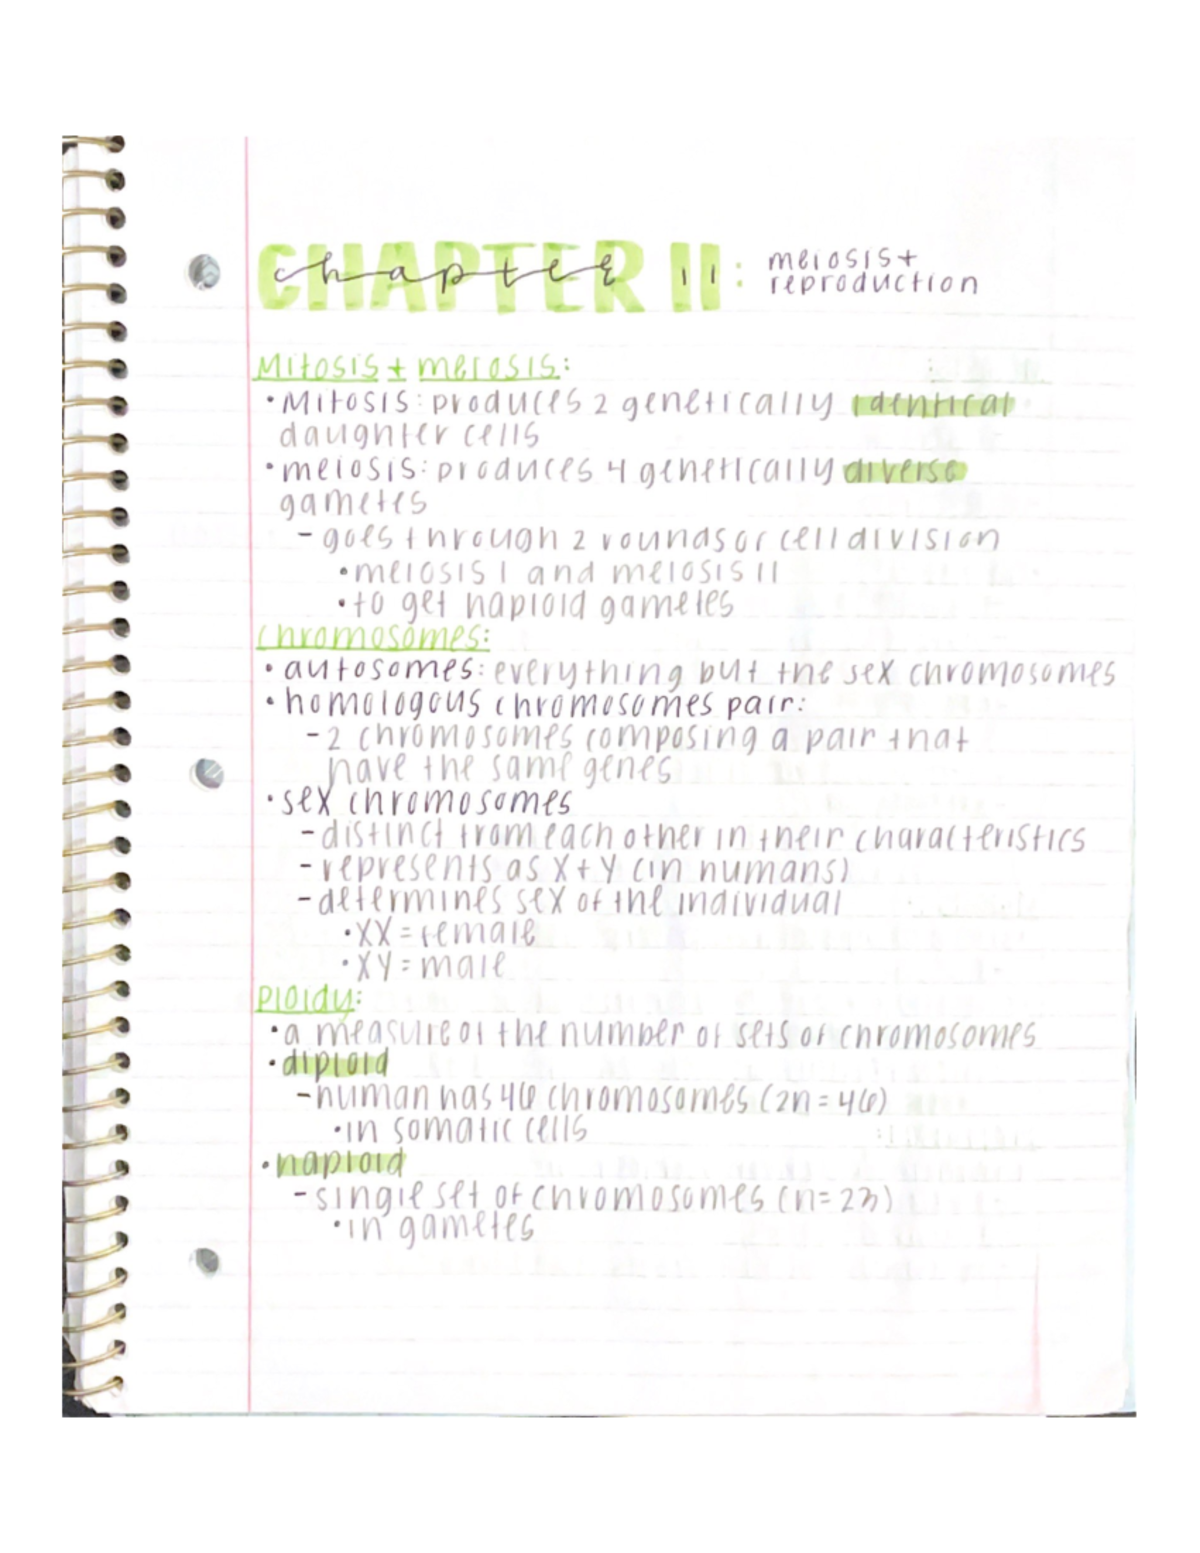 CHAPTER 11: meiosis +
chapter 11 reproduction
Mitosis + meiosis:
• Mitosis: produces 2 genetically identical
daughter cells
• meiosis: produces 4 genetically diverse
gametes
- goes through 2 rounds of cell division
• meiosis I and meiosis II
• to get haploid gametes
chromosomes:
• autosomes: everything but the sex chromosomes
• homologous chromosomes pair:
- 2 chromosomes composing a pair that
have the same genes
• sex chromosomes
- distinct from each other in their characteristics
- represents as X + Y (in humans)
- determines sex of the individual
• XX = female
• XY = male
Ploidy:
• a measure of the number of sets of chromosomes
• diploid
- human has 46 chromosomes (2n = 46)
• in somatic cells
• haploid
- single set of chromosomes (n = 23)
• in gametes